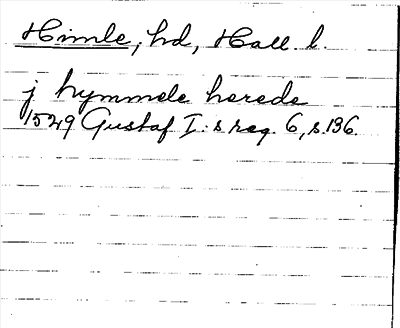 Himle, hd, Hall l.
j hymmele herede
1529 Gustaf I:s reg. 6, s. 136